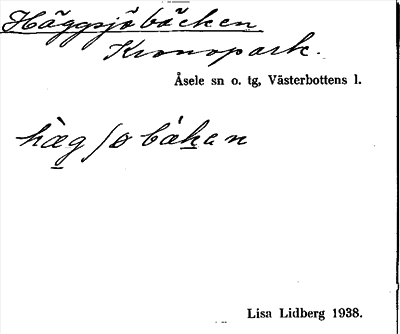 Häggsjöbäcken
Kronopark.
Åsele sn o. tg, Västerbottens l.
hæ̀g ʃø bä́kan
Lisa Lidberg 1938.